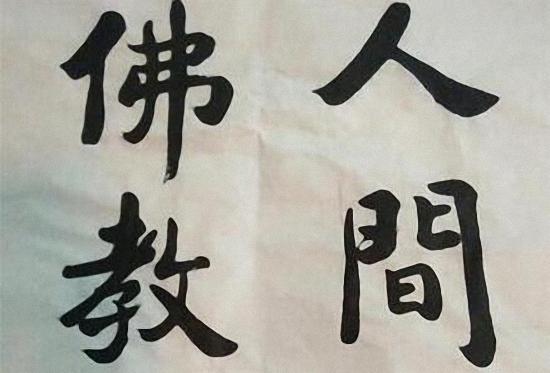 人間
佛教